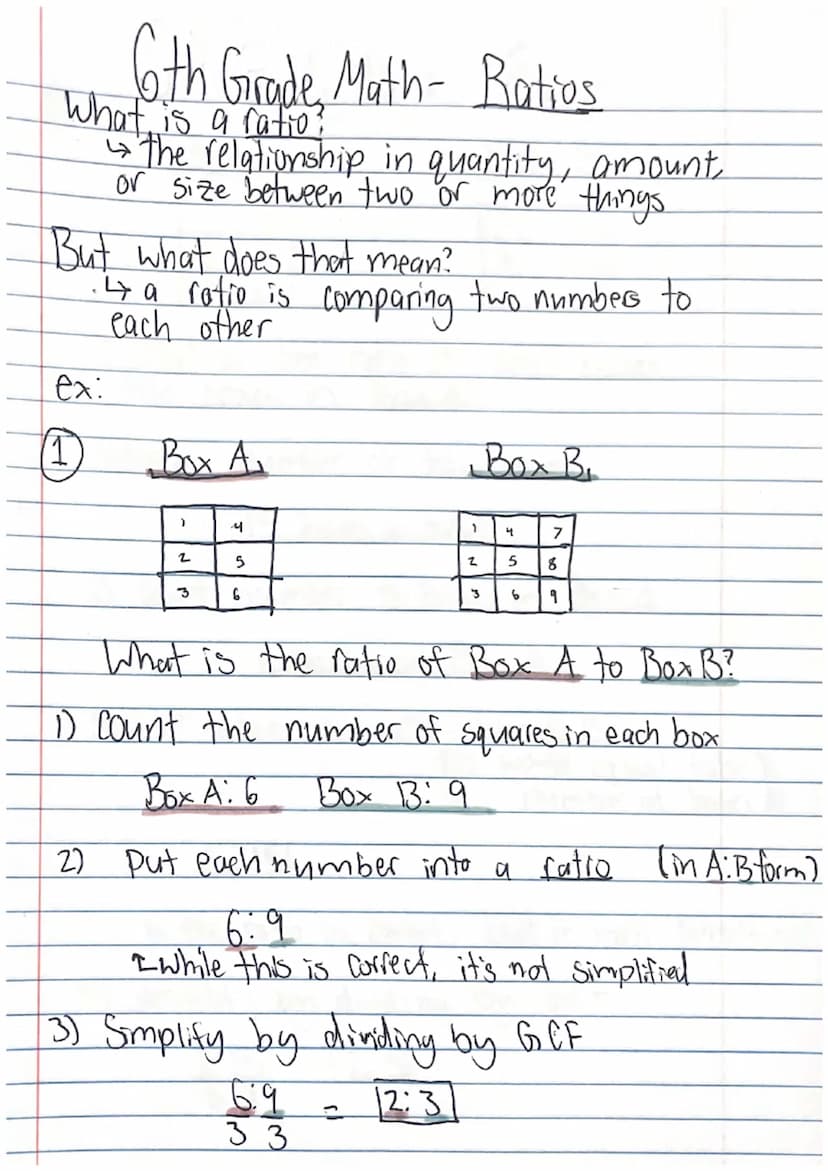 6th Grade Math- Ratios
What is a ratio?
↳ the relationship in quantity, amount,
or size between two or more things
But what does that mean?
↳ a ratio is comparing two numbers to
each other
ex:
1 Box A Box B
1 4 1 4 7
2 5 2 5 8
3 6 3 6 9
What is the ratio of Box A to Box B?
1) Count the number of squares in each box
Box A: 6 Box B: 9
2) Put each number into a ratio (in A:B form)
6:9
↑ While this is correct, it's not simplified
3) Simplify by dividing by GCF
6:9 = 2:3
3 3